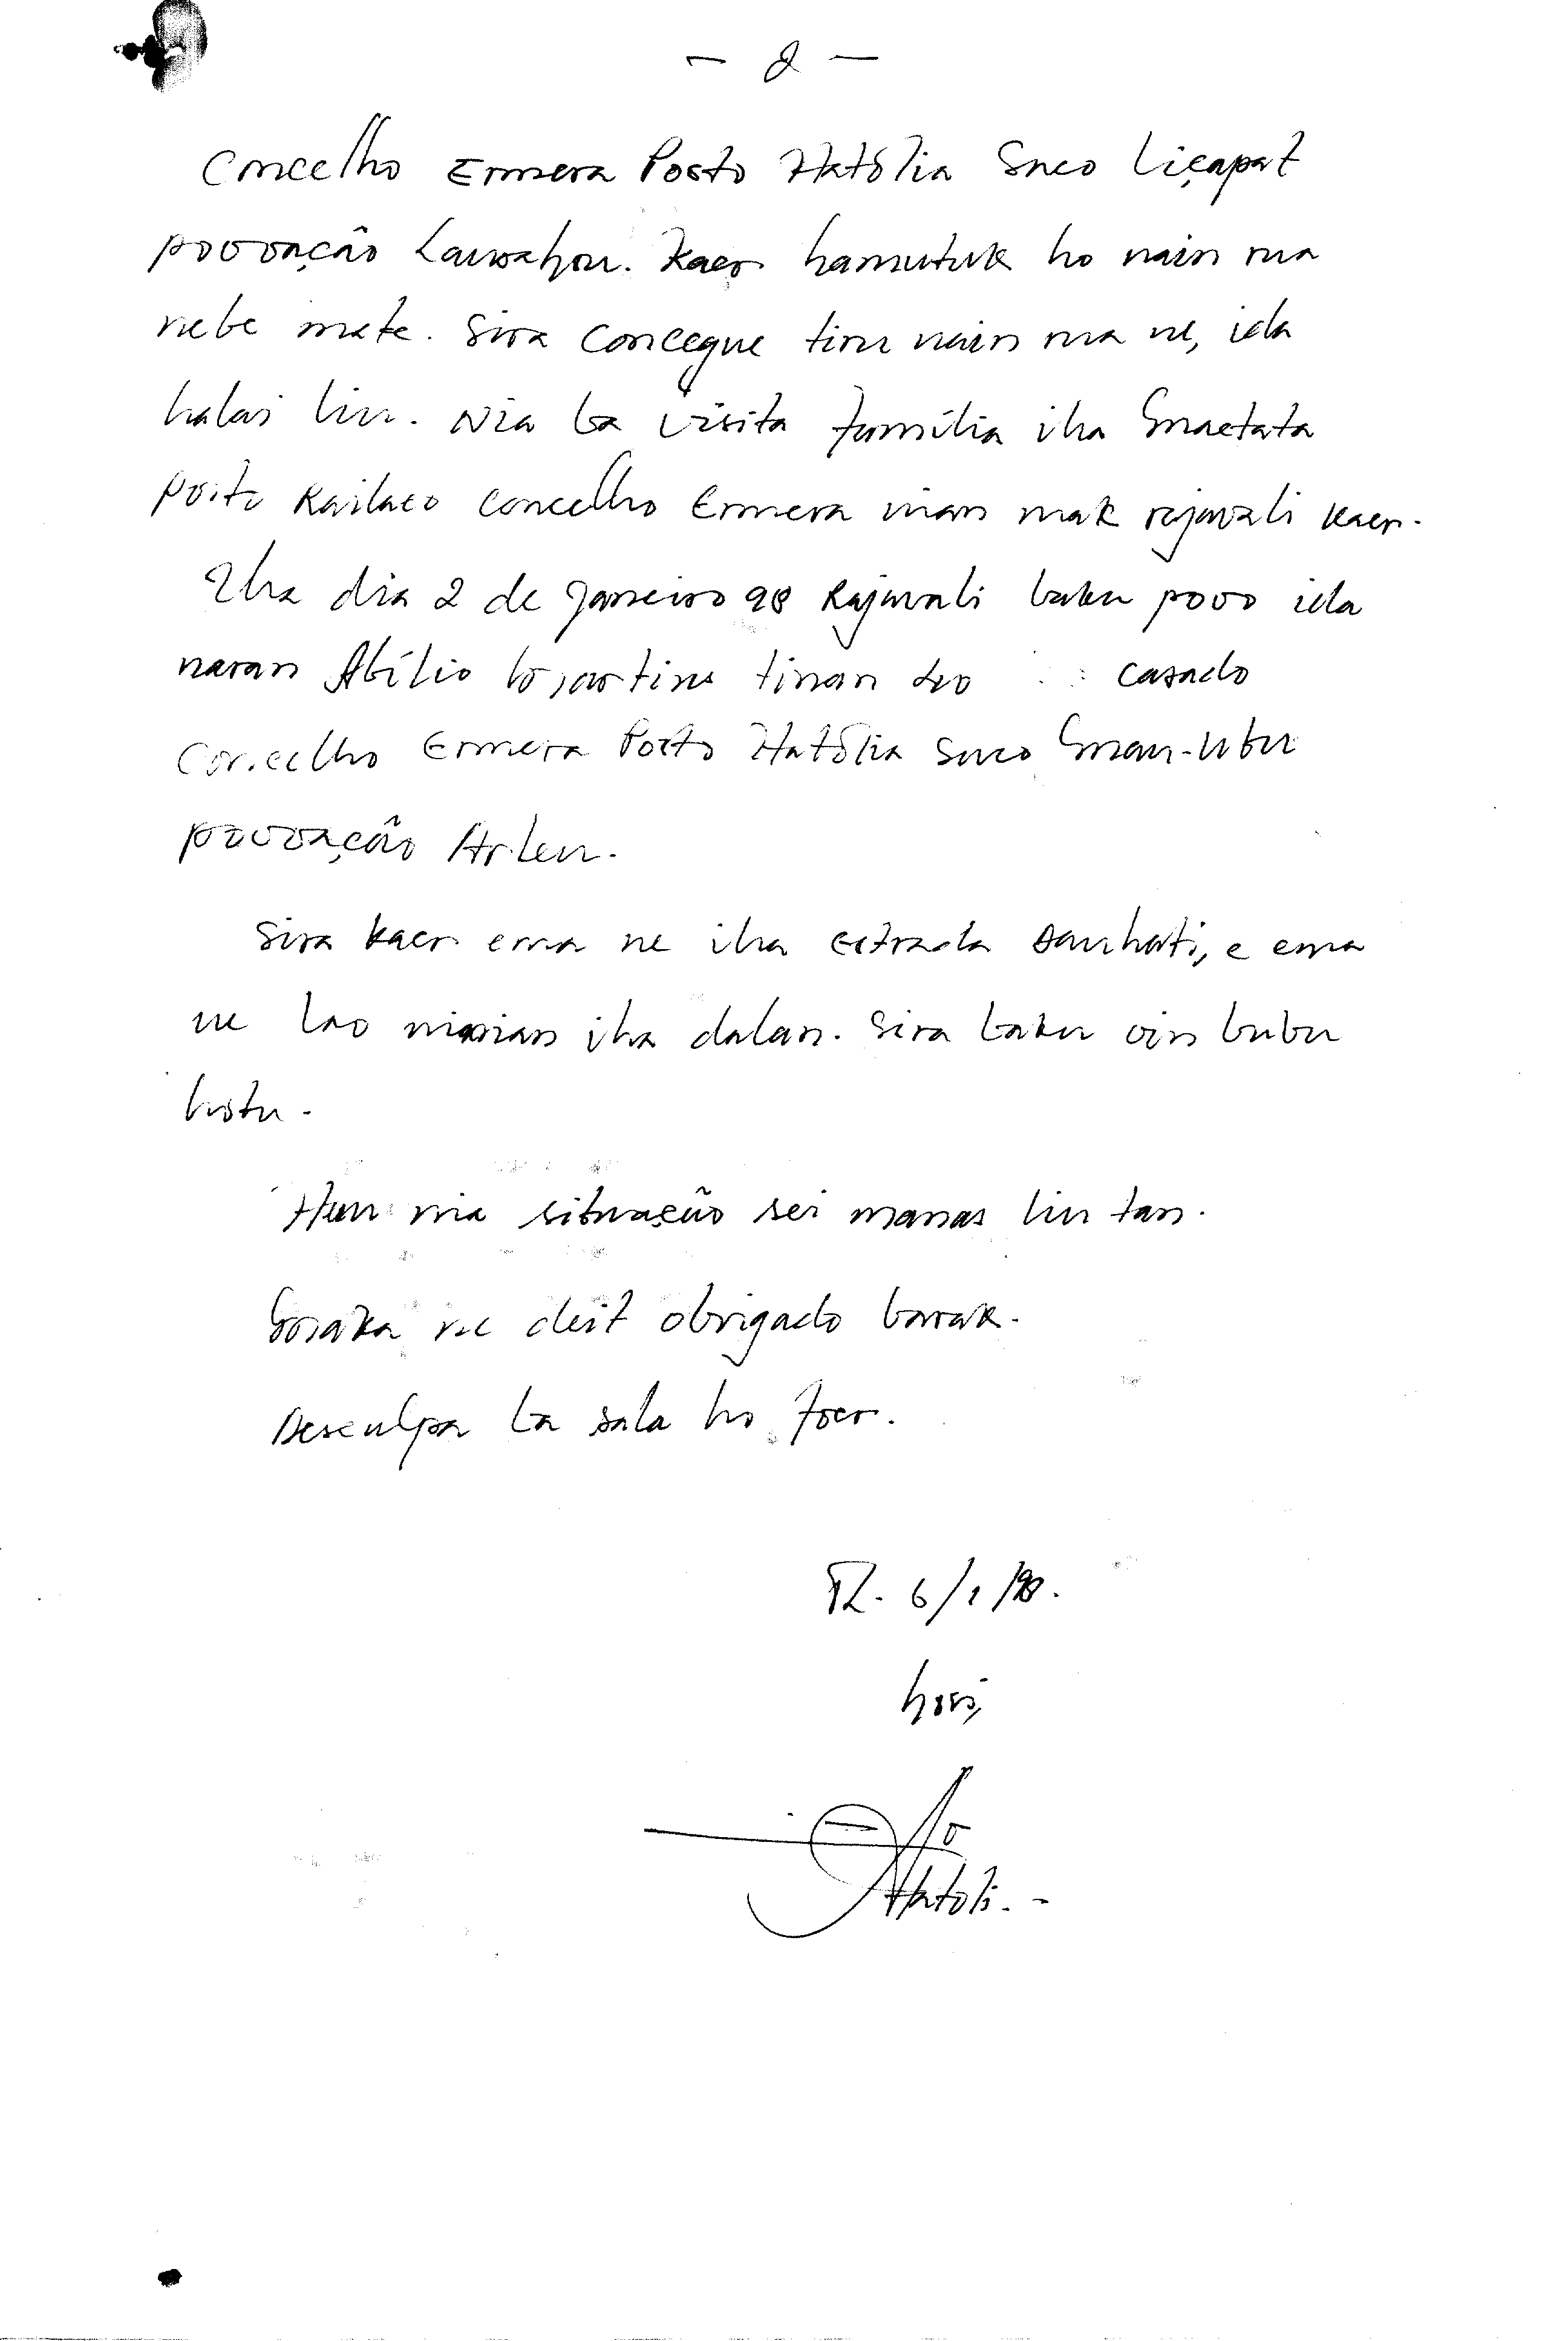 - 2 -
Concelho Ermera Posto Hatólia Suco Liçapat
povoação Lauwahou. Kaer hamutuk ho nain rua
nebe mate. Sira consegue tiru nain rua ne, ida
halai liu. Nia ba visita família iha Gmaetata
posto Kailaco concelho Ermera mian mak rajawali kaer.
Iha dia 2 de Janeiro 98 Rajawali baku povo ida
naran Abílio Martins tinan 40 casado
Concelho Ermera Posto Hatólia Suco Gmau-Ubu
povoação Arleu.
Sira kaer ema ne iha estrada Saurhati, e ema
ne lao mianian iha dalan. Sira baku oin bubu
hotu.
Hau nia situação sei manas liu tan.
To'o ne deit obrigado barak.
Desculpa ba sala ho foer.
TL. 6/1/98.
hosi,
Hatoli. -